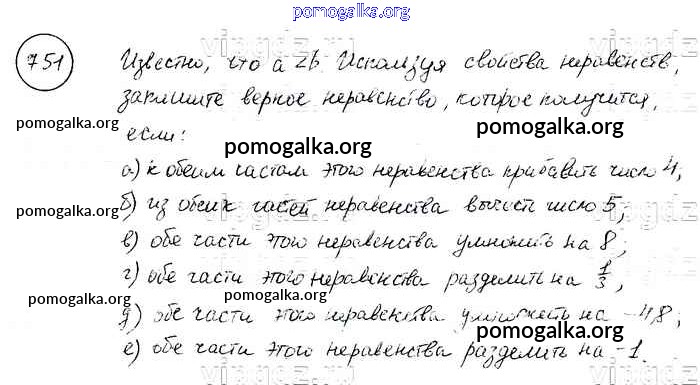 pomogalka.org
751 Известно, что a < b. Используя свойства неравенств,
запишите верное неравенство, которое получится,
pomogalka.org pomogalka.org
если:
pomogalka.org
а) к обеим частам этого неравенства прибавить число 4;
pomogalka.org б) из обеих частей неравенства вычесть число 5;
в) обе части этого неравенства умножить на 8;
г) обе части этого неравенства разделить на 1/3;
pomogalka.org pomogalka.org
д) обе части этого неравенства умножить на -4,8;
pomogalka.org
е) обе части этого неравенства разделить на -1.